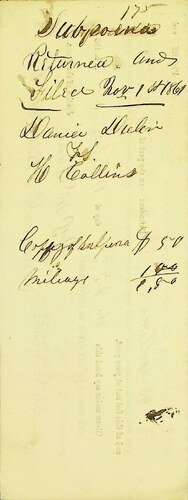 175
Subpoena
Returned and
Filed Nov 1st 1861
Daniel Dulin
vs
H Collins
Copy of subpoena $ 50
Mileage 1,00
1,50